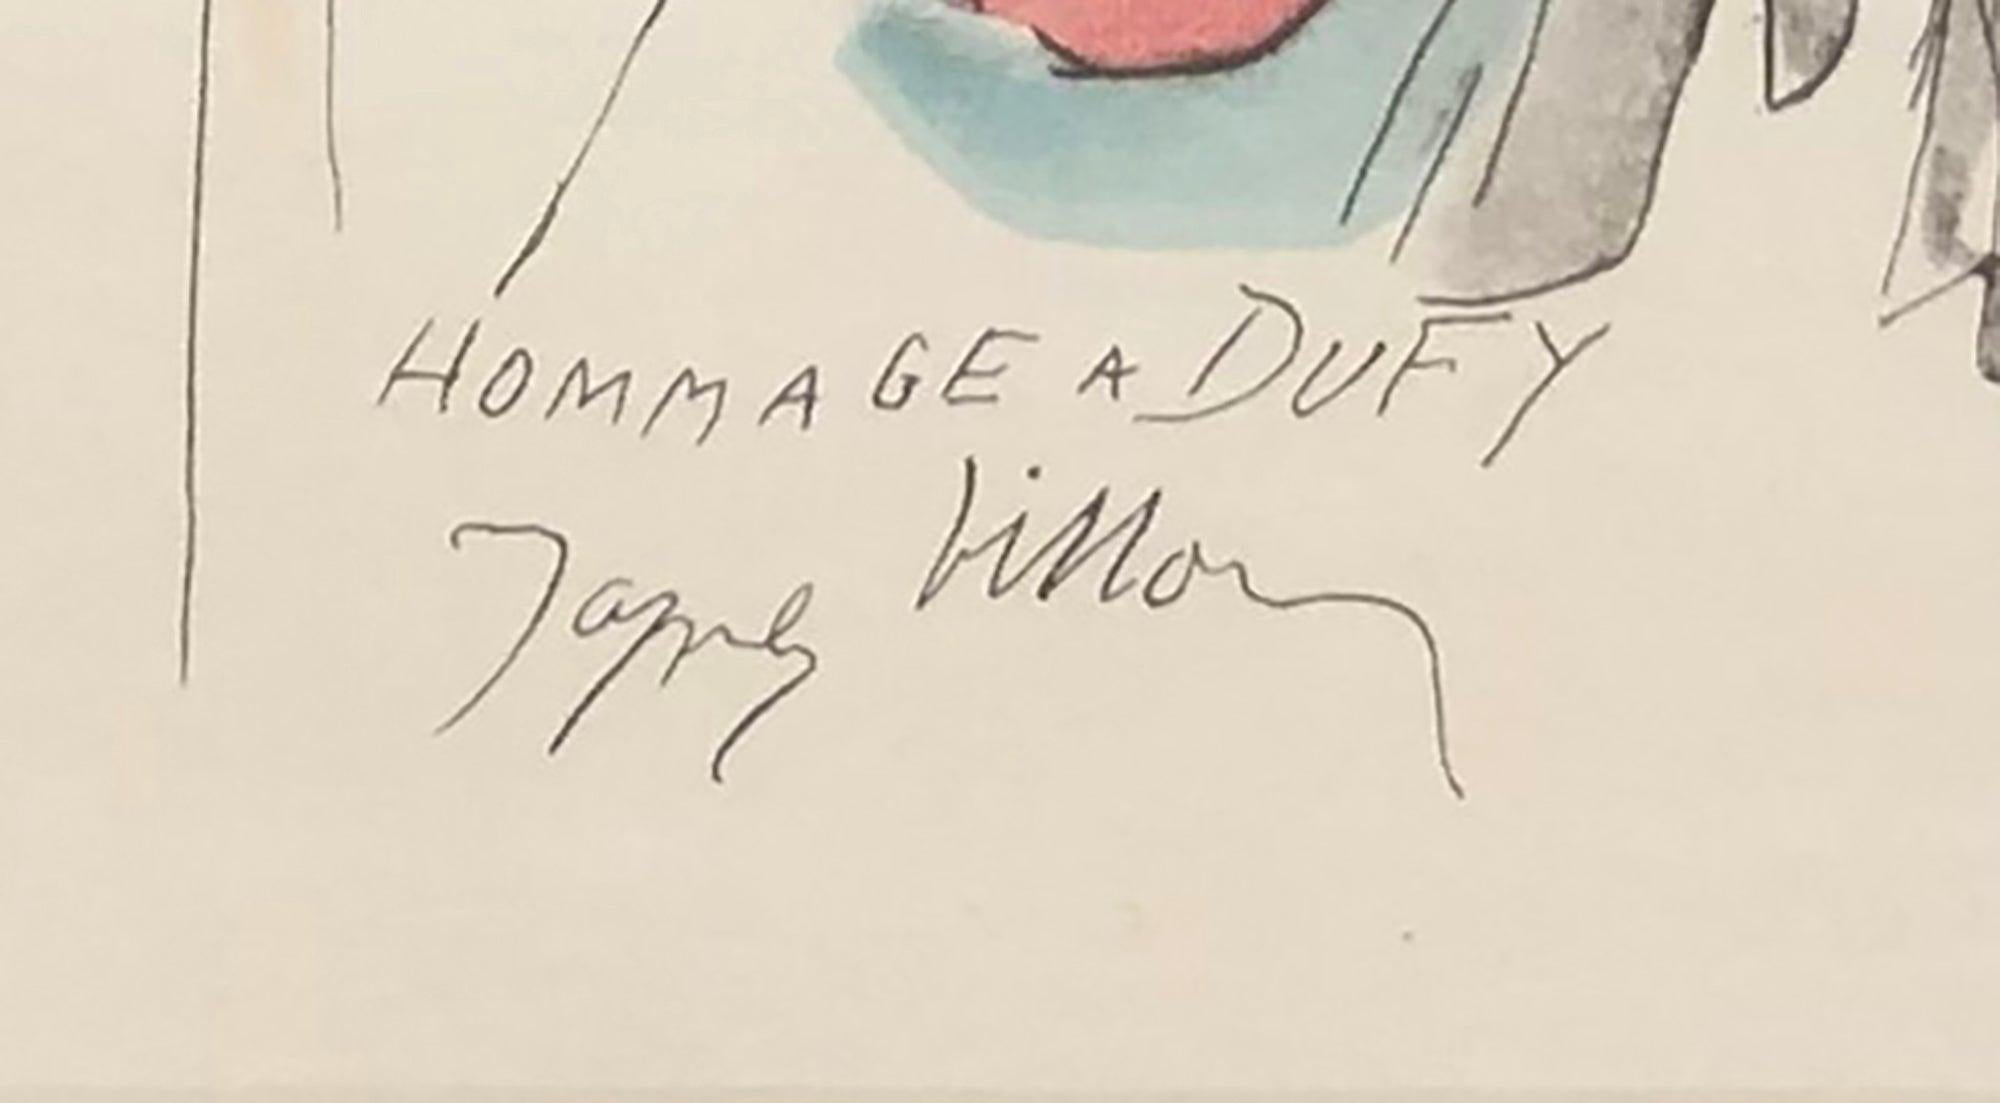 HOMMAGE A DUFY
Jacques Villon